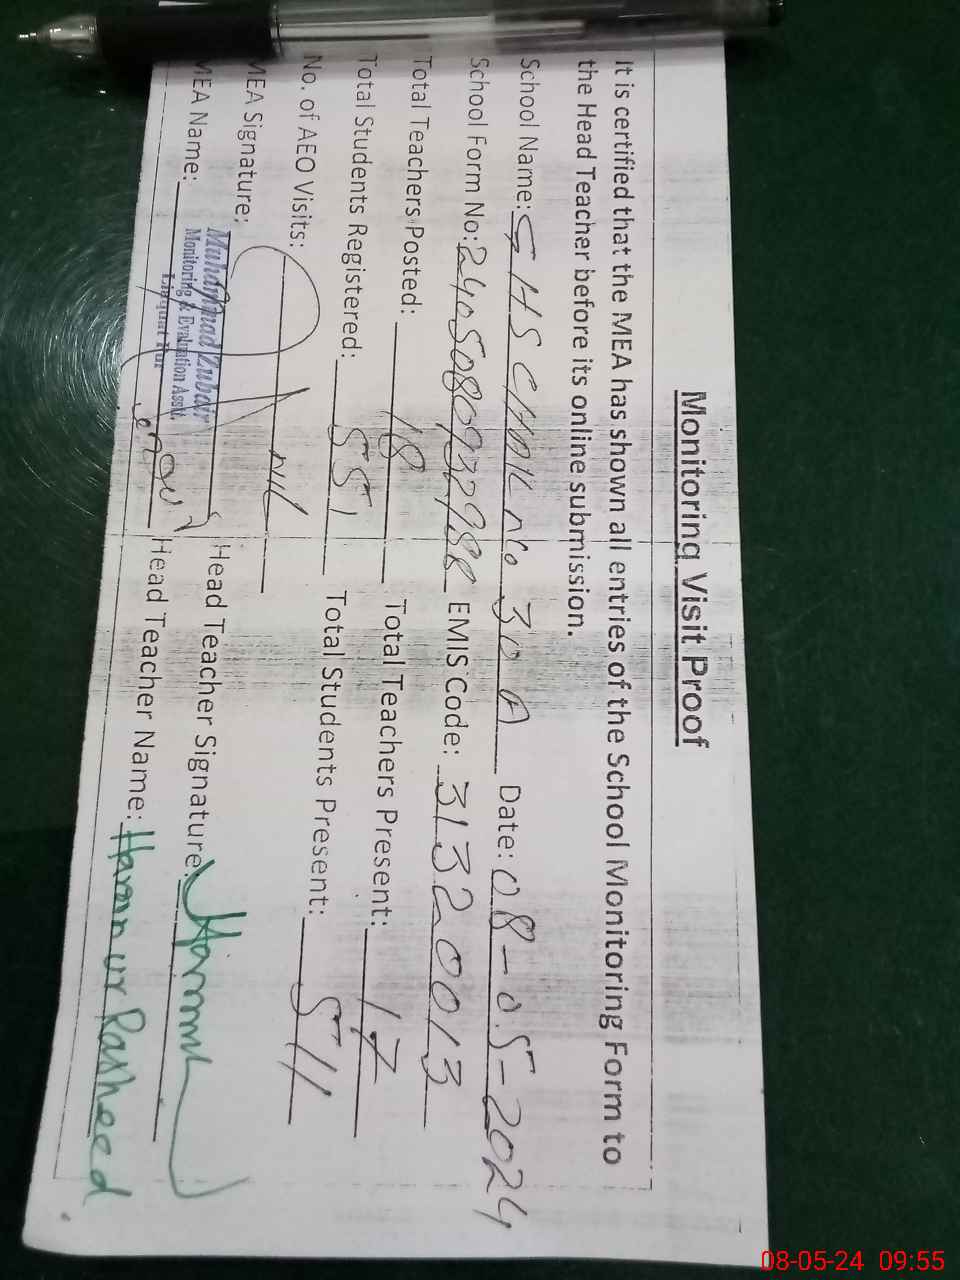 Monitoring Visit Proof
It is certified that the MEA has shown all entries of the School Monitoring Form to
the Head Teacher before its online submission.
School Name: GHS CHAK No 30 A Date: 08-05-2024
School Form No: EMIS Code: 31320013
Total Teachers Posted: 18 Total Teachers Present: 17
Total Students Registered: 551 Total Students Present: 511
No. of AEO Visits: nil
MEA Signature: Head Teacher Signature:
Muhammad Zubair
MEA Name: Monitoring & Evaluation Asstt. Head Teacher Name: Harun ur Rasheed
Liaquat Pur
08-05-24 09:55